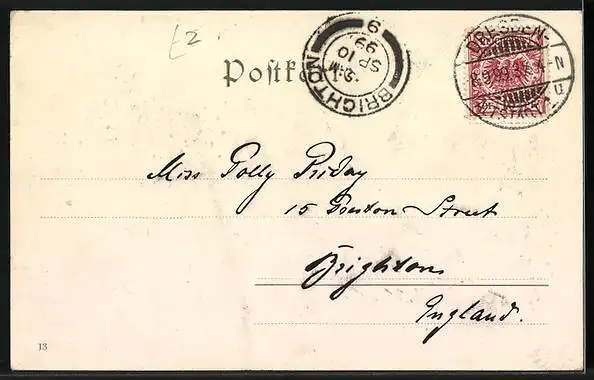 £2
Postkarte
BRIGHTON
9
SP 10
99
DRESDEN-
N
Miss Polly Friday
15 Preston Street
Brighton
England.
13